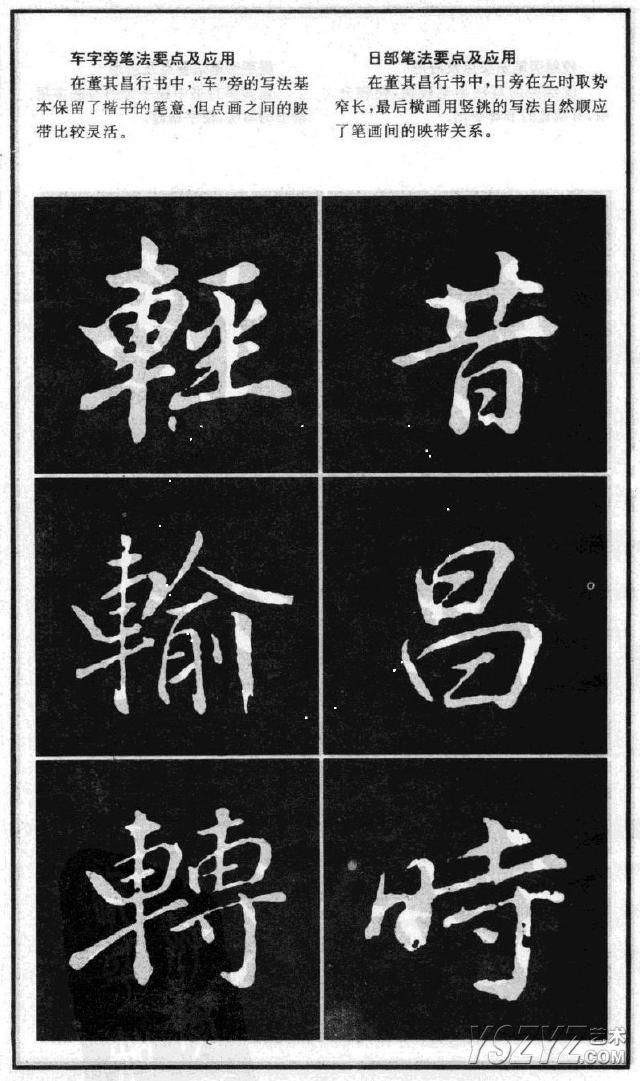 车字旁笔法要点及应用
在董其昌行书中，“车”旁的写法基
本保留了楷书的笔意，但点画之间的映
带比较灵活。
日部笔法要点及应用
在董其昌行书中，日旁在左时取势
窄长，最后横画用竖挑的写法自然顺应
了笔画间的映带关系。
輕
輸
轉
昔
昌
時
YSZYZ艺术
.COM